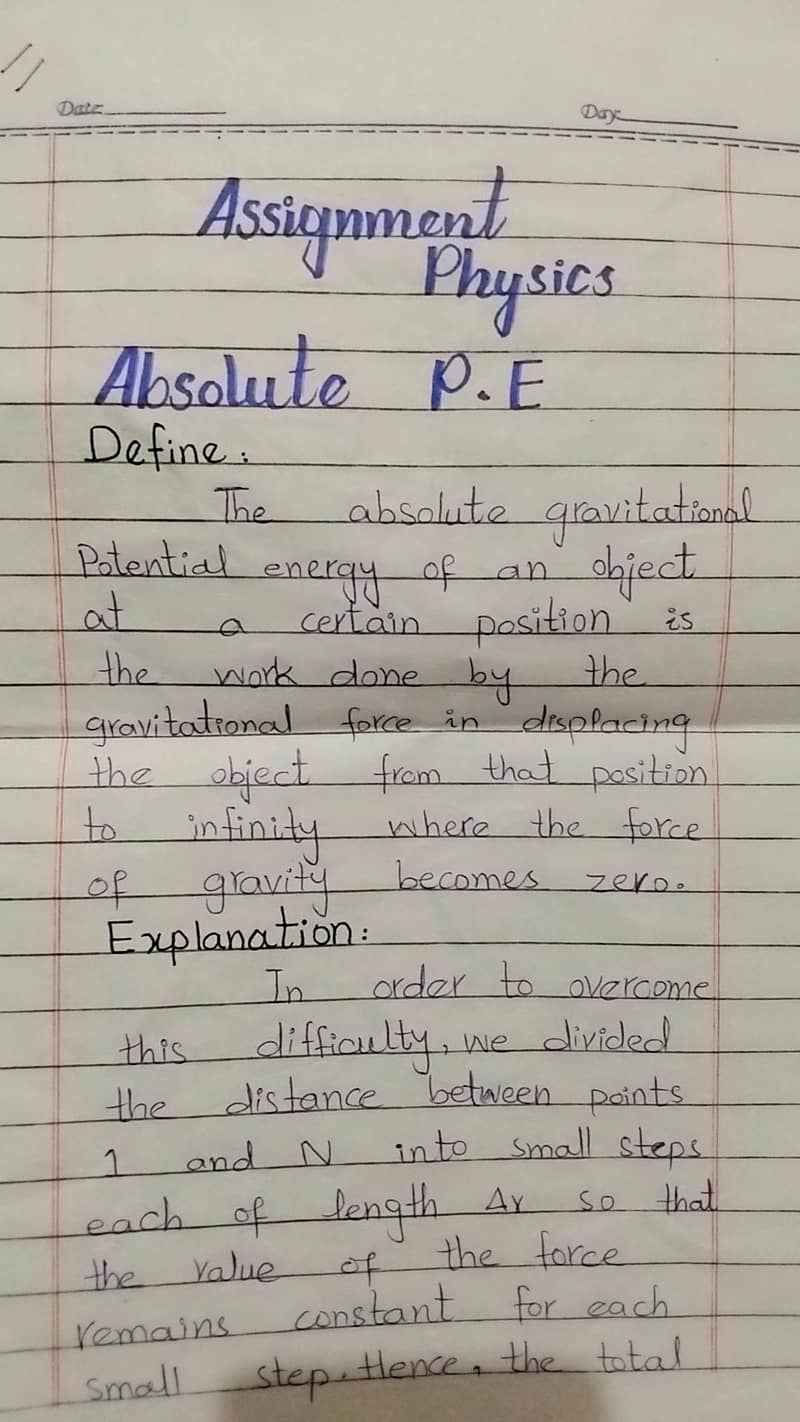 Date:
Day:
Assignment
Physics
Absolute P.E
Define:
The absolute gravitational
Potential energy of an object
at a certain position is
the work done by the
gravitational force in displacing
the object from that position
to infinity where the force
of gravity becomes zero.
Explanation:
In order to overcome
this difficulty, we divided
the distance between points
1 and N into small steps
each of length Δr so that
the value of the force
remains constant for each
small step. Hence, the total